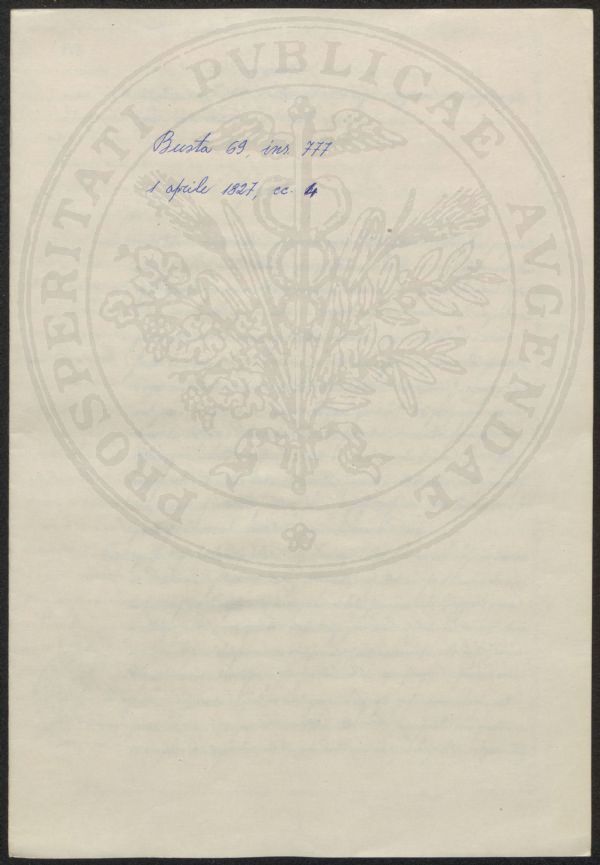 PROSPERITATI PVBLICAE AVGENDAE
Busta 69, ins. 777
1 aprile 1827, cc. 4